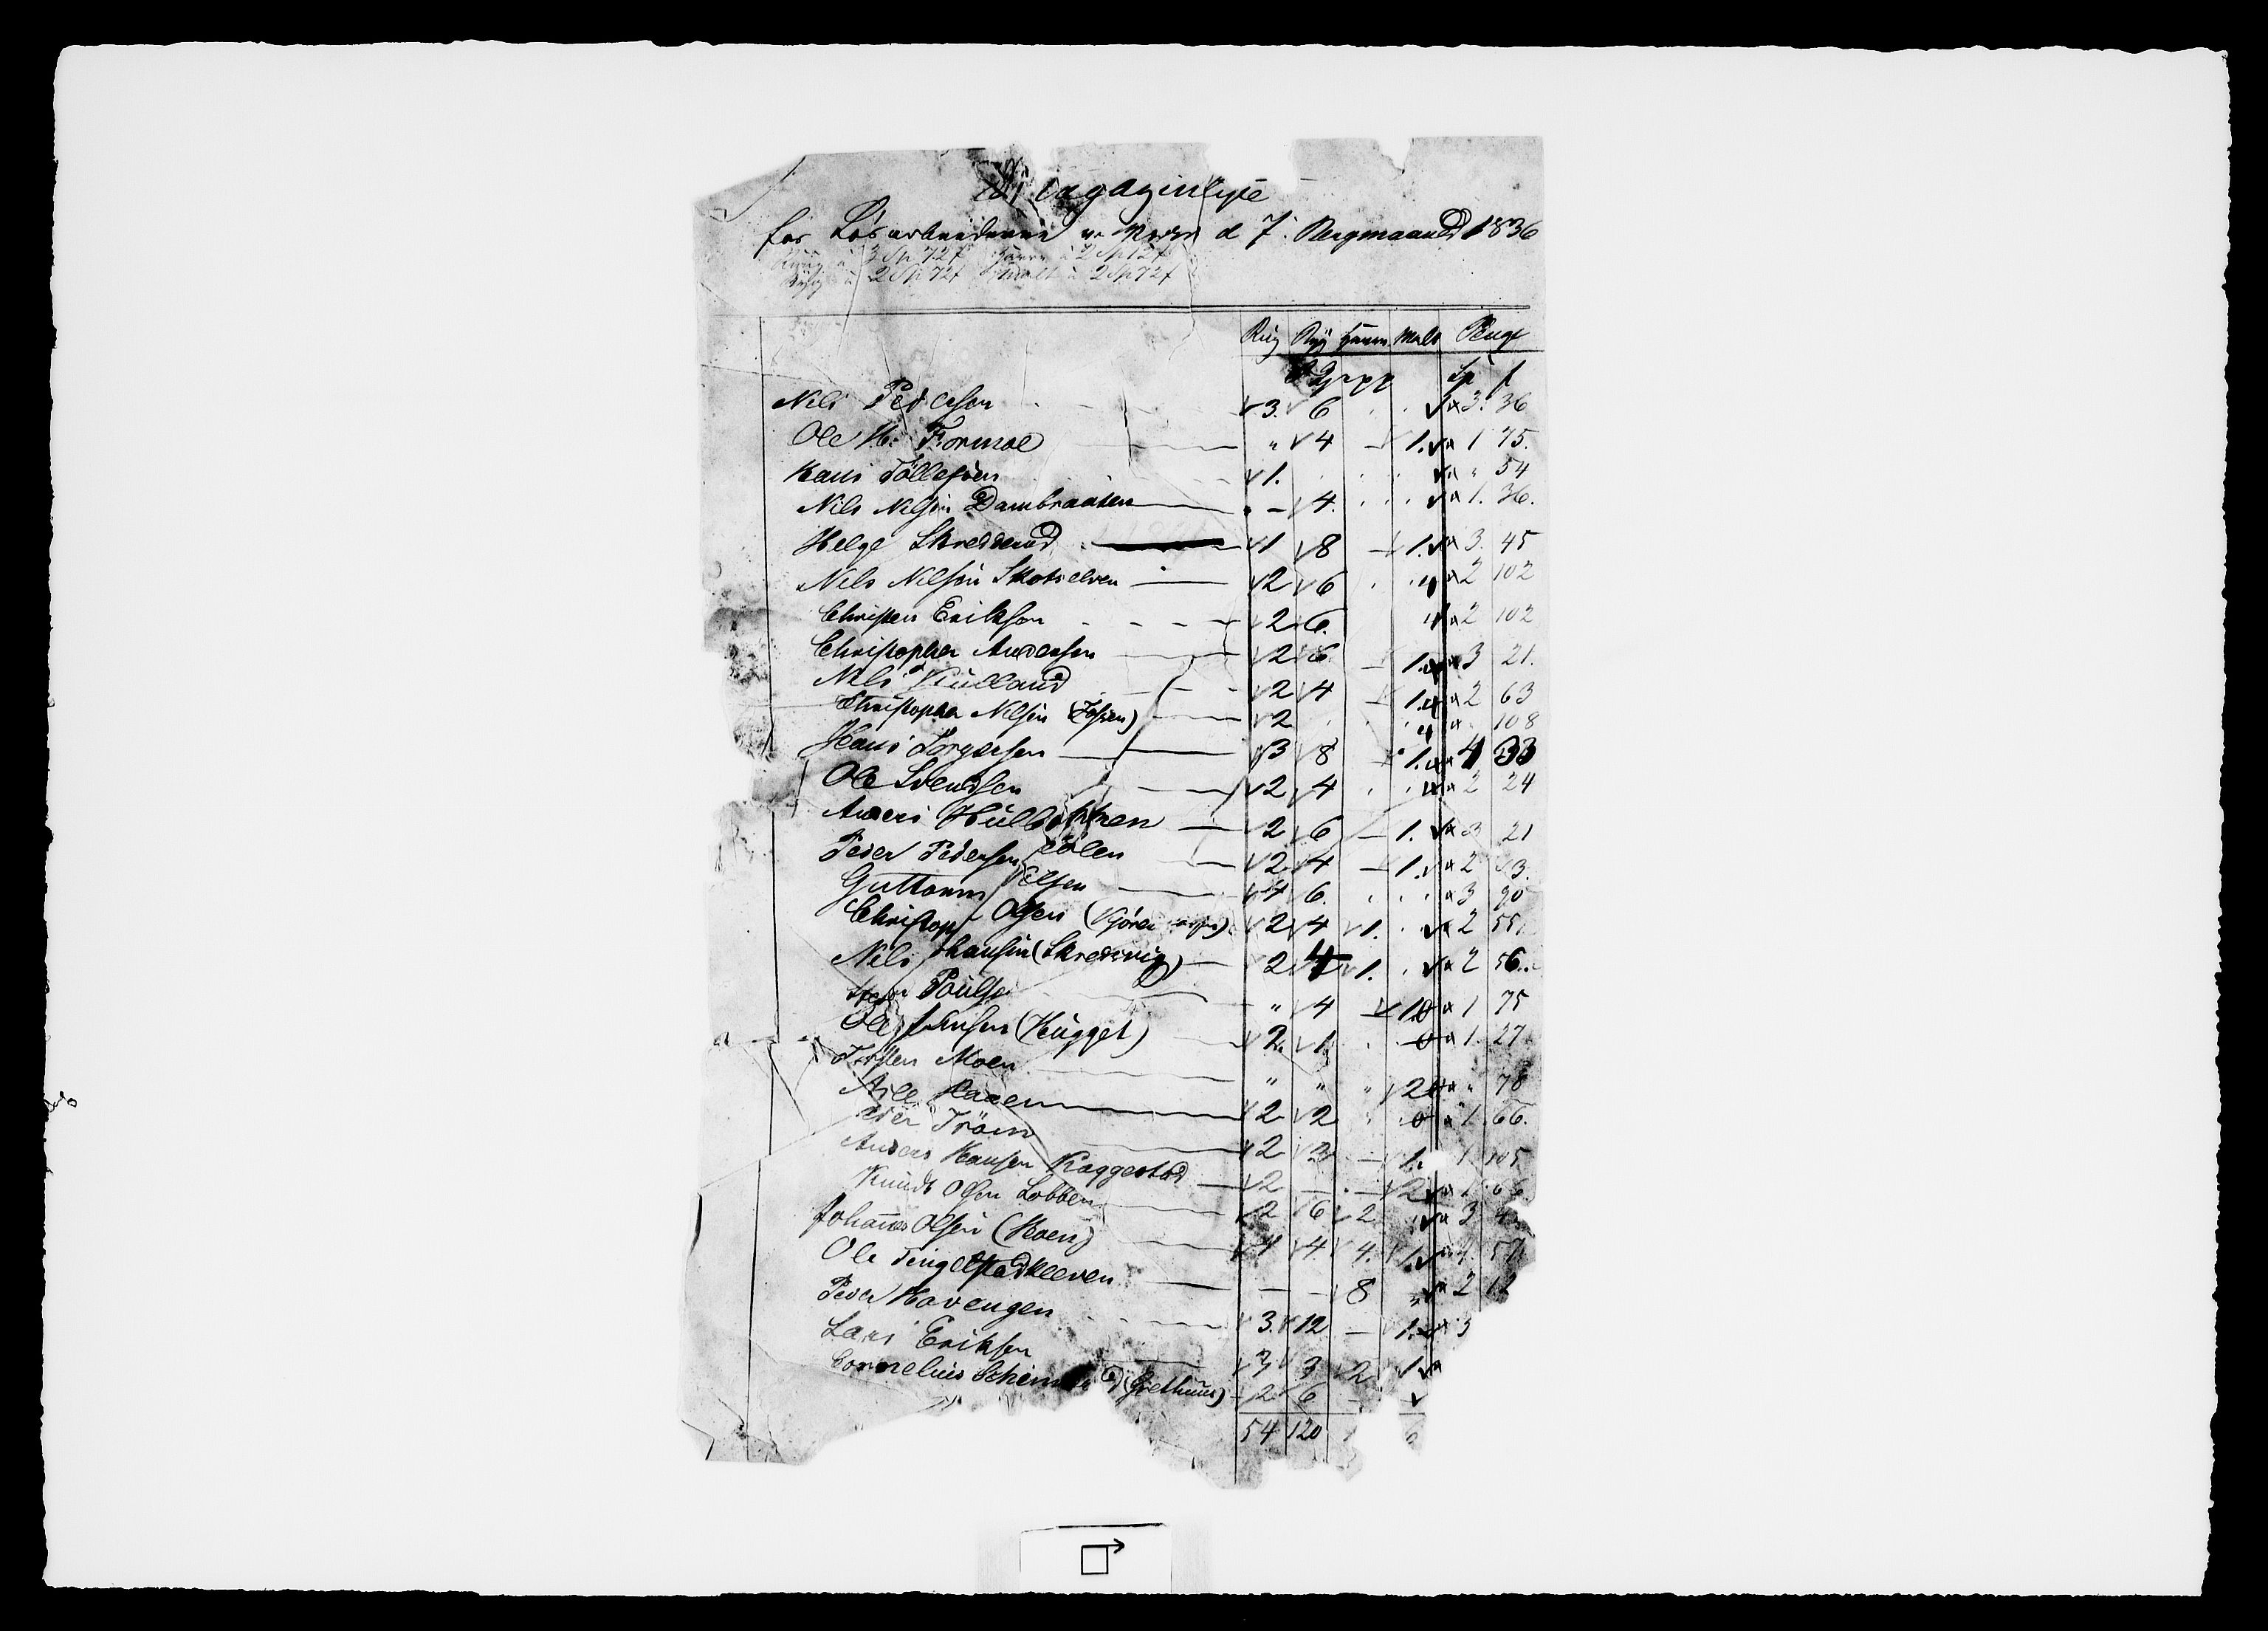 Magazinliste
for Løsarbeiderne v. Værket d 7. Bergmaaned 1836
Rug à 3 Sp 72 f Havre à 2 Sp 12 f
Byg à 2 Sp 72 f Malt à 2 Sp 72 f
Rug Byg Havre Malt Penge
Sp f
Nils Pedersen 3. 6 3. 36
Ole Formoe " 4 1. 1 75.
Hans Tollefsen 1. " 54
Nils Nilsen Dambraaten - 4. 1. 36.
Helge Skredderud 1 8 1. 3. 45
Nils Nilsen Skotselven 2 6 2 102
Christen Eriksen 2 6. 2 102
Christopher Andersen 2 6. 1. 3 21.
Nils Kulland 2 4 1. 2 63
Christopher Nilsen 2 108
Hans Torgersen 3 8 1. 4 33
Ole Svendsen 2 4 2 24
Anders Hulbakken 2 6 1. 3 21
Peder Pedersen 2 4 1. 2 63.
Guttorm Olsen 4 6. 3 90
Christoph Olsen 2 4 1. 2 55
Nils Hansen (Skredsvig) 2 4 1. 2 56.
Poulsen " 4 1 1 75
Ole Johnsen (Hugget) 2. 1. 1. 27
Torsten Moen " " " 2 " 78
Nils Haaen 2 2 1. 66.
Peder Strøm 2 2 1. 1 105
Anders Hansen Kaggestad 2 - - 2 1 66
Knudt Olsen Lobben 2 6 2 3
Johannes Olsen (Hoen) 4 4 4. 1. 4. 57
Ole Tingelstadkleven - - 8 " 2 12
Peder Havengen 3. 12 - 1. 3
Lars Eriksen 3 3 2 1
Cornelius (Grethuus) 2 6 -
54 120